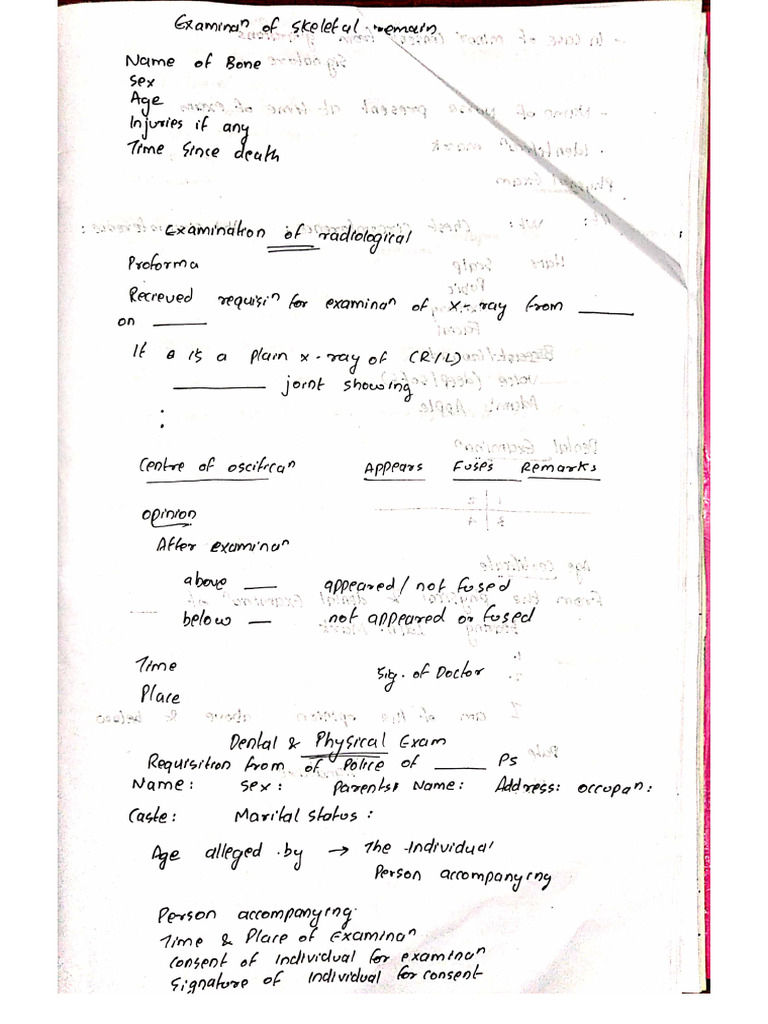 Examinaⁿ of skeletal remain
Name of Bone
Sex
Age
Injuries if any
Time since death
Examination of radiological
Proforma
Recieved requisiⁿ for examinaⁿ of X-ray from ____
on ____
It is a plain x-ray of (R/L)
____ joint showing
:
Centre of ossificaⁿ Appears Fuses Remarks
opinion
After examinaⁿ
above __ appeared/not fused
below __ not appeared or fused
Time Sig. of Doctor
Place
Dental & Physical Exam
Requisition from of Police of ____ Ps
Name: Sex: Parents Name: Address: occupaⁿ:
Caste: Marital status:
Age alleged by → The individual
Person accompanying
Person accompanying
Time & Place of Examinaⁿ
Consent of individual for examinaⁿ
Signature of individual for consent